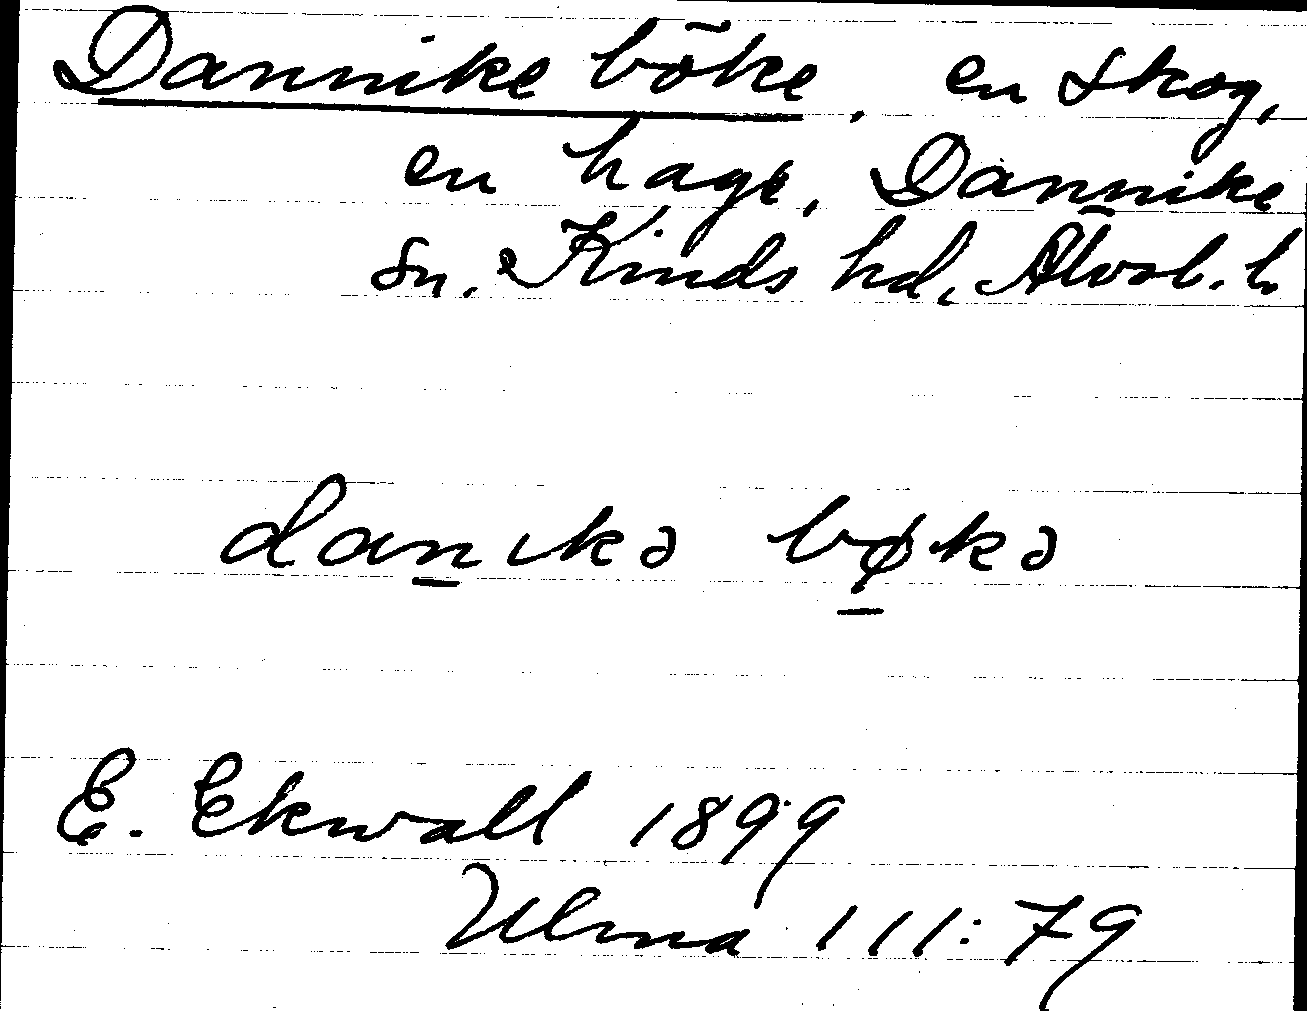 Dannike böke, en skog,
en hage, Dannike
sn. Kinds hd, Älvsb. l.
danıkə bøkə
E. Ekwall 1899
Ulma 111:79